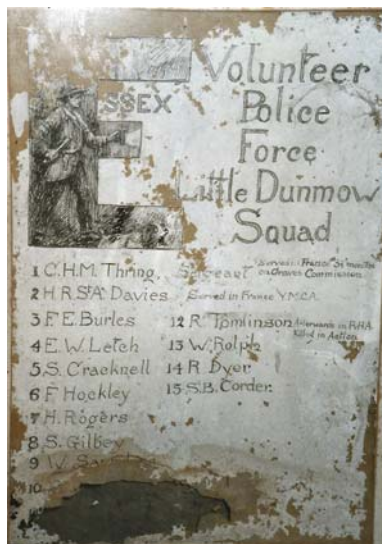 ESSEX
Volunteer
Police
Force
Little Dunmow
Squad
1 C.H.M. Thring. Sergeant Served in France
on Graves Commission.
2 H.R.St.A. Davies Served in France Y.M.C.A.
3 F.E. Burles
4 E.W. Letch
5 S. Cracknell
6 F. Hockley
7 H. Rogers
8 S. Gilbey
9 W.
10
12 R. Tomlinson Afterwards in R.H.A.
Killed in Action
13 W. Rolph
14 R Dyer
15 S.B. Corder.